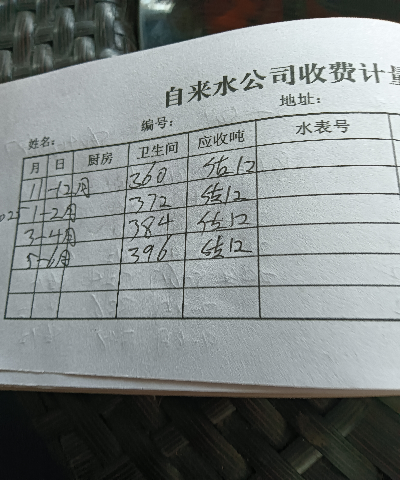 自来水公司收费计量
姓名: 编号: 地址:
月 日 厨房 卫生间 应收吨 水表号
11-12月 360 估12
1-2月 372 估12
3-4月 384 估12
5-6月 396 估12